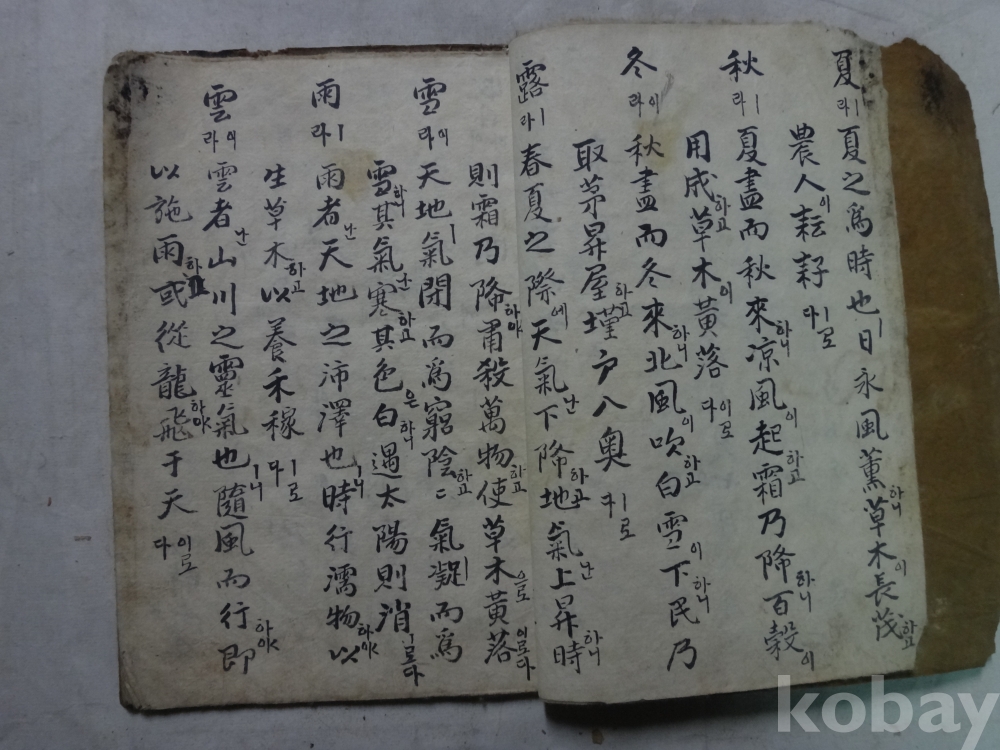 夏ㅣ라 夏之爲時也ㅣ日永風薰하니草木이長茂하고
農人이耘耔ㅣ로다
秋ㅣ라 夏盡而秋來하니凉風이起하고霜乃降하니百穀이
用成하고草木이黃落이로다
冬이라 秋盡而冬來하니北風이吹하고白雪이下하니民乃
取茅昇屋하고墐戶八奧ㅣ로다
露ㅣ라 春夏之際에天氣난下降하고地氣난上昇하니時
則霜乃降하야肅殺萬物하고使草木으로黃落이로다
雪이라 天地氣ㅣ閉而爲窮陰하고〻氣ㅣ凝而爲
雪하니其氣난寒하고其色은白하니遇太陽則消ㅣ로다
雨ㅣ라 雨者난天地之沛澤也ㅣ니時行濡物하야以
生草木하고以養禾稼ㅣ로다
雲이라 雲者난山川之靈氣也ㅣ니隨風而行하야即
以施雨하고或從龍하야飛于天이로다
kobay